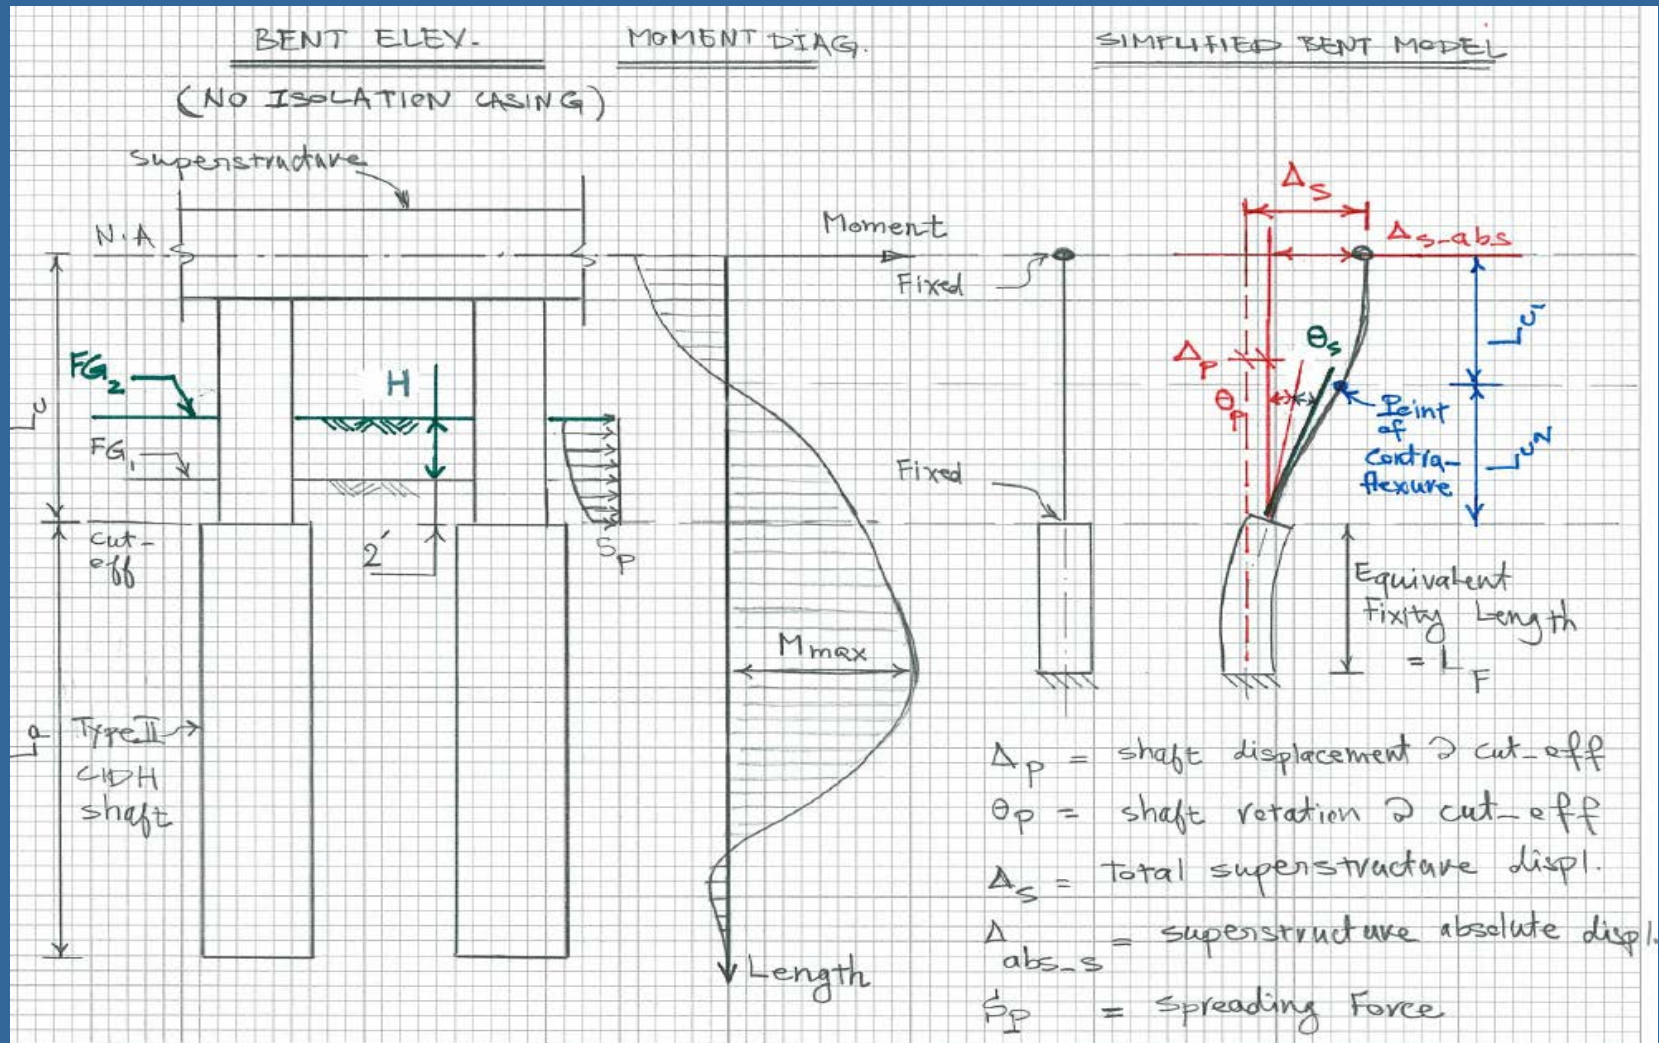 BENT ELEV.
(NO ISOLATION CASING)
MOMENT DIAG.
SIMPLIFIED BENT MODEL
Superstructure
N.A
Lc
FG2
FG1
H
Cut-
off
2'
Sp
Lp
Type II
CIDH
shaft
Moment
Mmax
Length
Fixed
Fixed
Δs
Δs-abs
Δp
θp
θs
Lc1
Lc2
Point
of
Contra-
flexure
Equivalent
Fixity Length
= LF
Δp = shaft displacement @ cut-off
θp = shaft rotation @ cut-off
Δs = Total superstructure displ.
Δabs-s = superstructure absolute displ.
Sp = Spreading Force